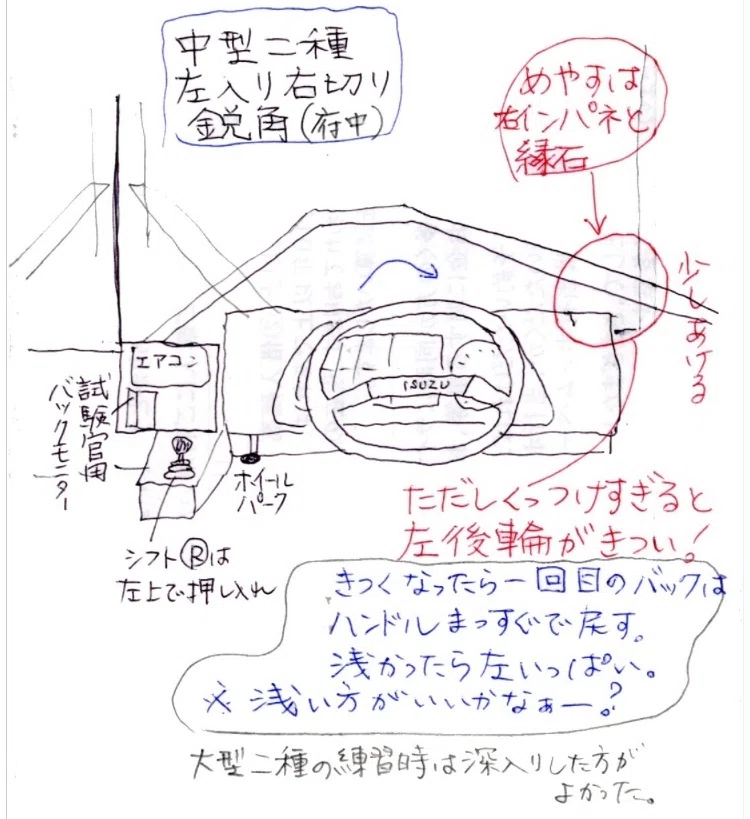 中型二種
左入り右切り
鋭角(府中)
めやすは
右インパネと
縁石
少しあける
エアコン
試験官用
バックモニター
ISUZU
ホイール
パーク
シフトⓇは
左上で押し入れ
ただしくっつけすぎると
左後輪がきつい!
きつくなったら一回目のバックは
ハンドルまっすぐで戻す。
浅かったら左いっぱい。
※浅い方がいいかなぁー?
大型二種の練習時は深入りした方が
よかった。